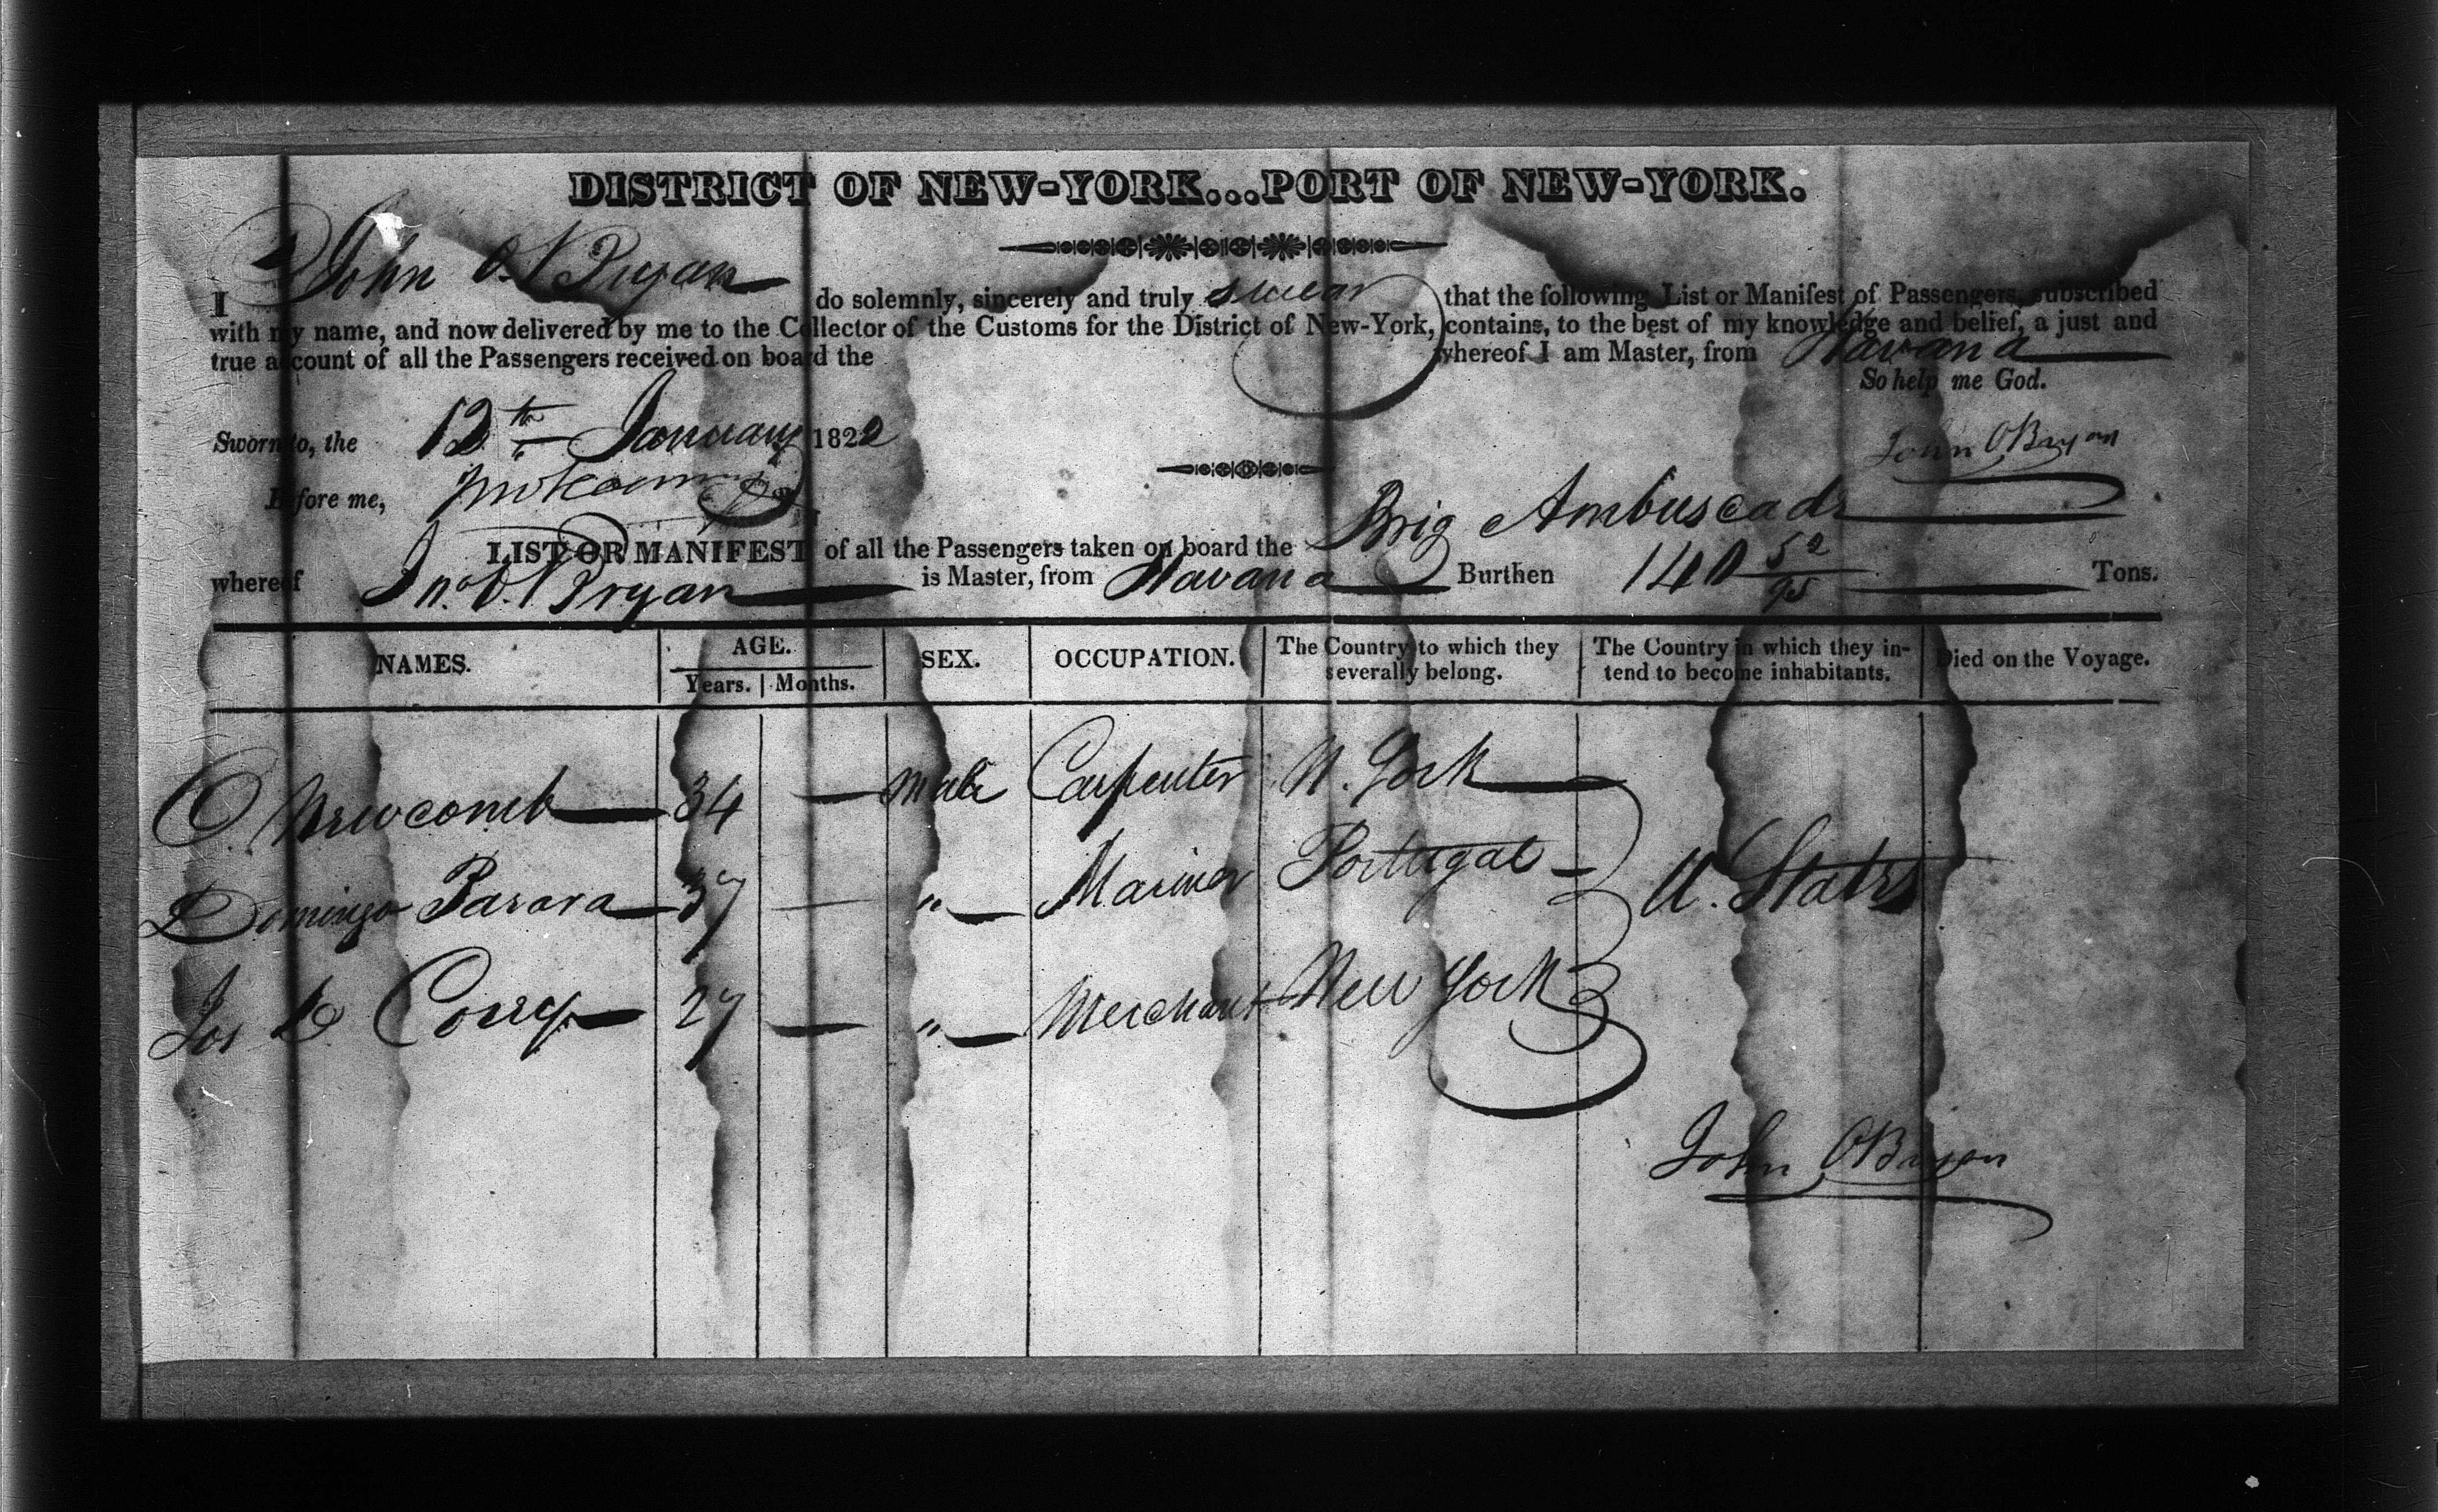 DISTRICT OF NEW-YORK...PORT OF NEW-YORK.
I John O'Bryan do solemnly, sincerely and truly swear that the following List or Manifest of Passengers, subscribed
with my name, and now delivered by me to the Collector of the Customs for the District of New-York, contains, to the best of my knowledge and belief, a just and
true account of all the Passengers received on board the whereof I am Master, from Havana
So help me God.
Sworn to, the 12th January 1822
John OBryan
Before me,
LIST OR MANIFEST of all the Passengers taken on board the Brig Ambuscade
whereof Jno O. Bryan is Master, from Havana Burthen 140 52/95 Tons.
NAMES. AGE. SEX. OCCUPATION. The Country to which they severally belong. The Country in which they intend to become inhabitants. Died on the Voyage.
Years. Months.
O. Newcomb 34 — Male Carpenter N. York
Domingo 37 — " Mariner Portugal U. States
Jos Correy 27 — " Merchant New York
John OBryan